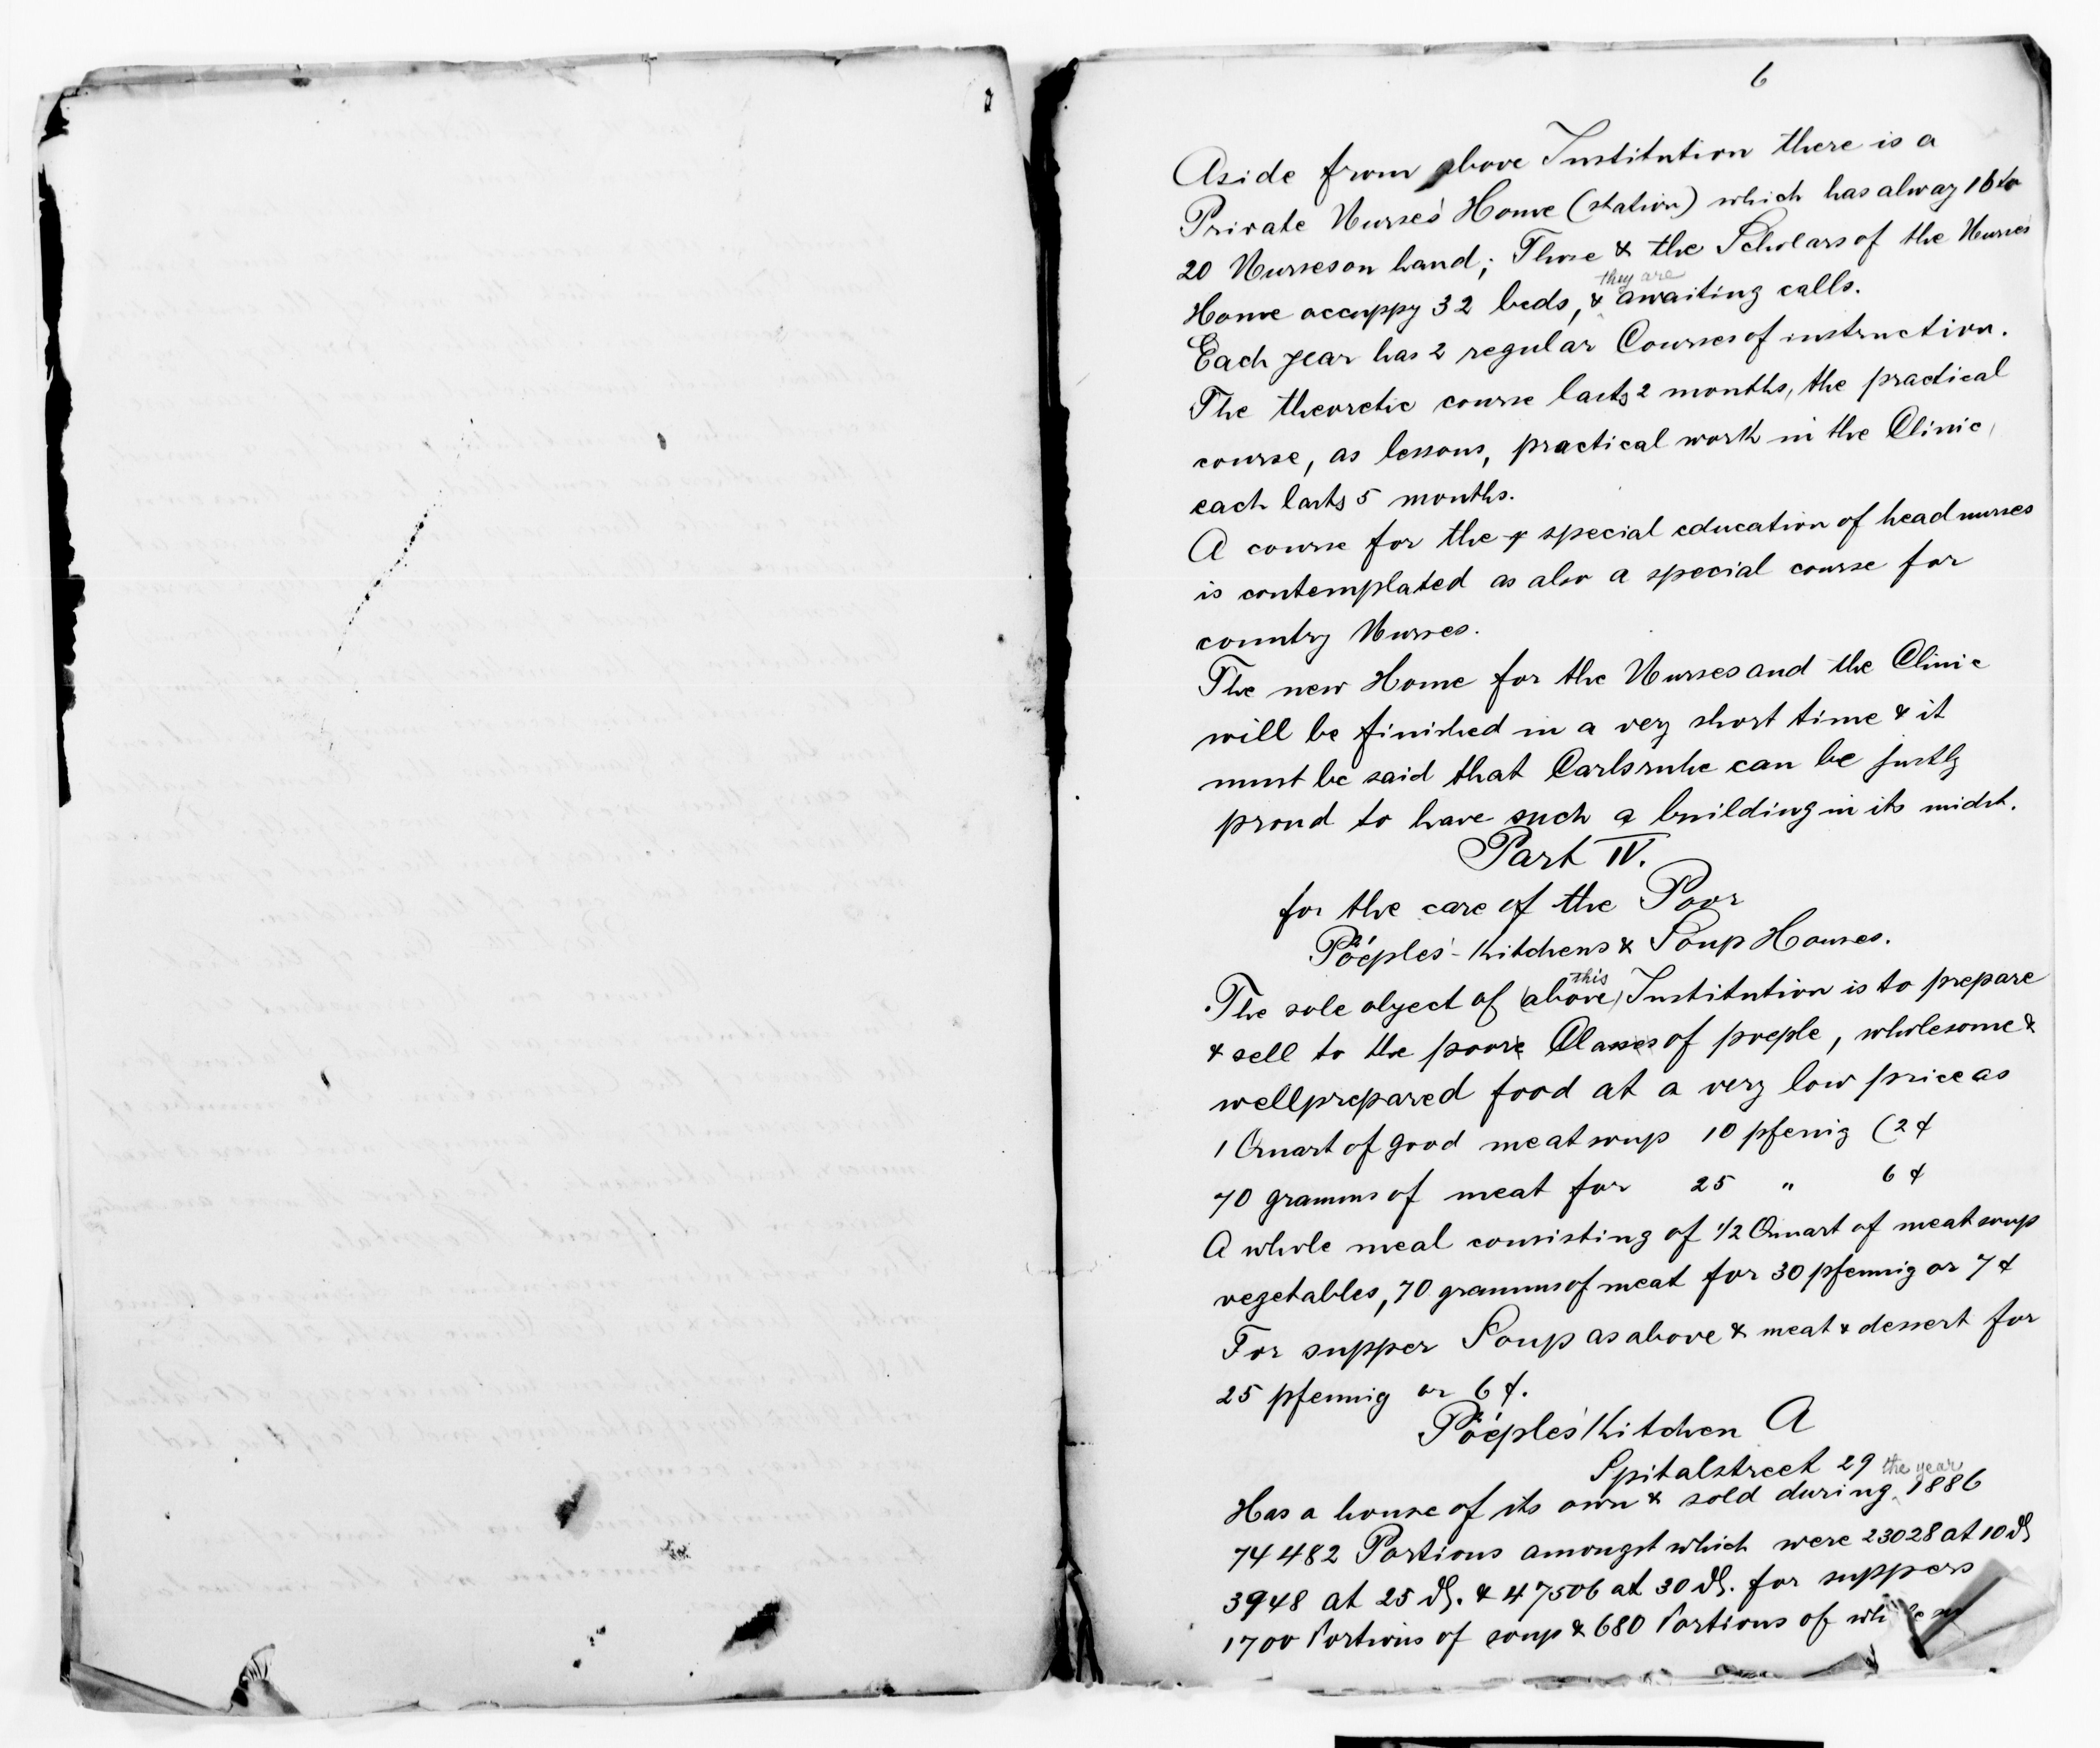 6
Aside from above Institution there is a
Private Nurses' Home (station) which has alway 16 to
20 Nurses on hand; Those & the Scholars of the Nurses'
they are
Home occuppy 32 beds, & awaiting calls.
Each year has 2 regular Courses of instruction.
The theoretic course lasts 2 months, the practical
course, as lessons, practical work in the Clinic,
each lasts 5 months.
A course for the special education of head nurses
is contemplated as also a special course for
country Nurses.
The new Home for the Nurses and the Clinic
will be finished in a very short time & it
must be said that Carlsruhe can be justly
proud to have such a building in its midst.
Part IV.
for the care of the Poor
Poeples'-Kitchens & Soup Houses.
this
The sole object of (above) Institution is to prepare
& sell to the poore Classes of poeple, wholesome &
wellprepared food at a very low price as
1 Quart of good meat soup 10 pfenig (2 ¢
70 gramms of meat for 25 " 6 ¢
A whole meal consisting of 1/2 Quart of meat soup
vegetables, 70 gramms of meat for 30 pfennig or 7 ¢
For supper Soup as above & meat & dessert for
25 pfennig or 6 ¢.
Poeples' Kitchen A
Spitalstreet 29
the year
Has a house of its own & sold during 1886
74482 Portions amongst which were 23028 at 10 ₰
3948 at 25 ₰. & 47506 at 30 ₰. for suppers
1700 Portions of soup & 680 Portions of